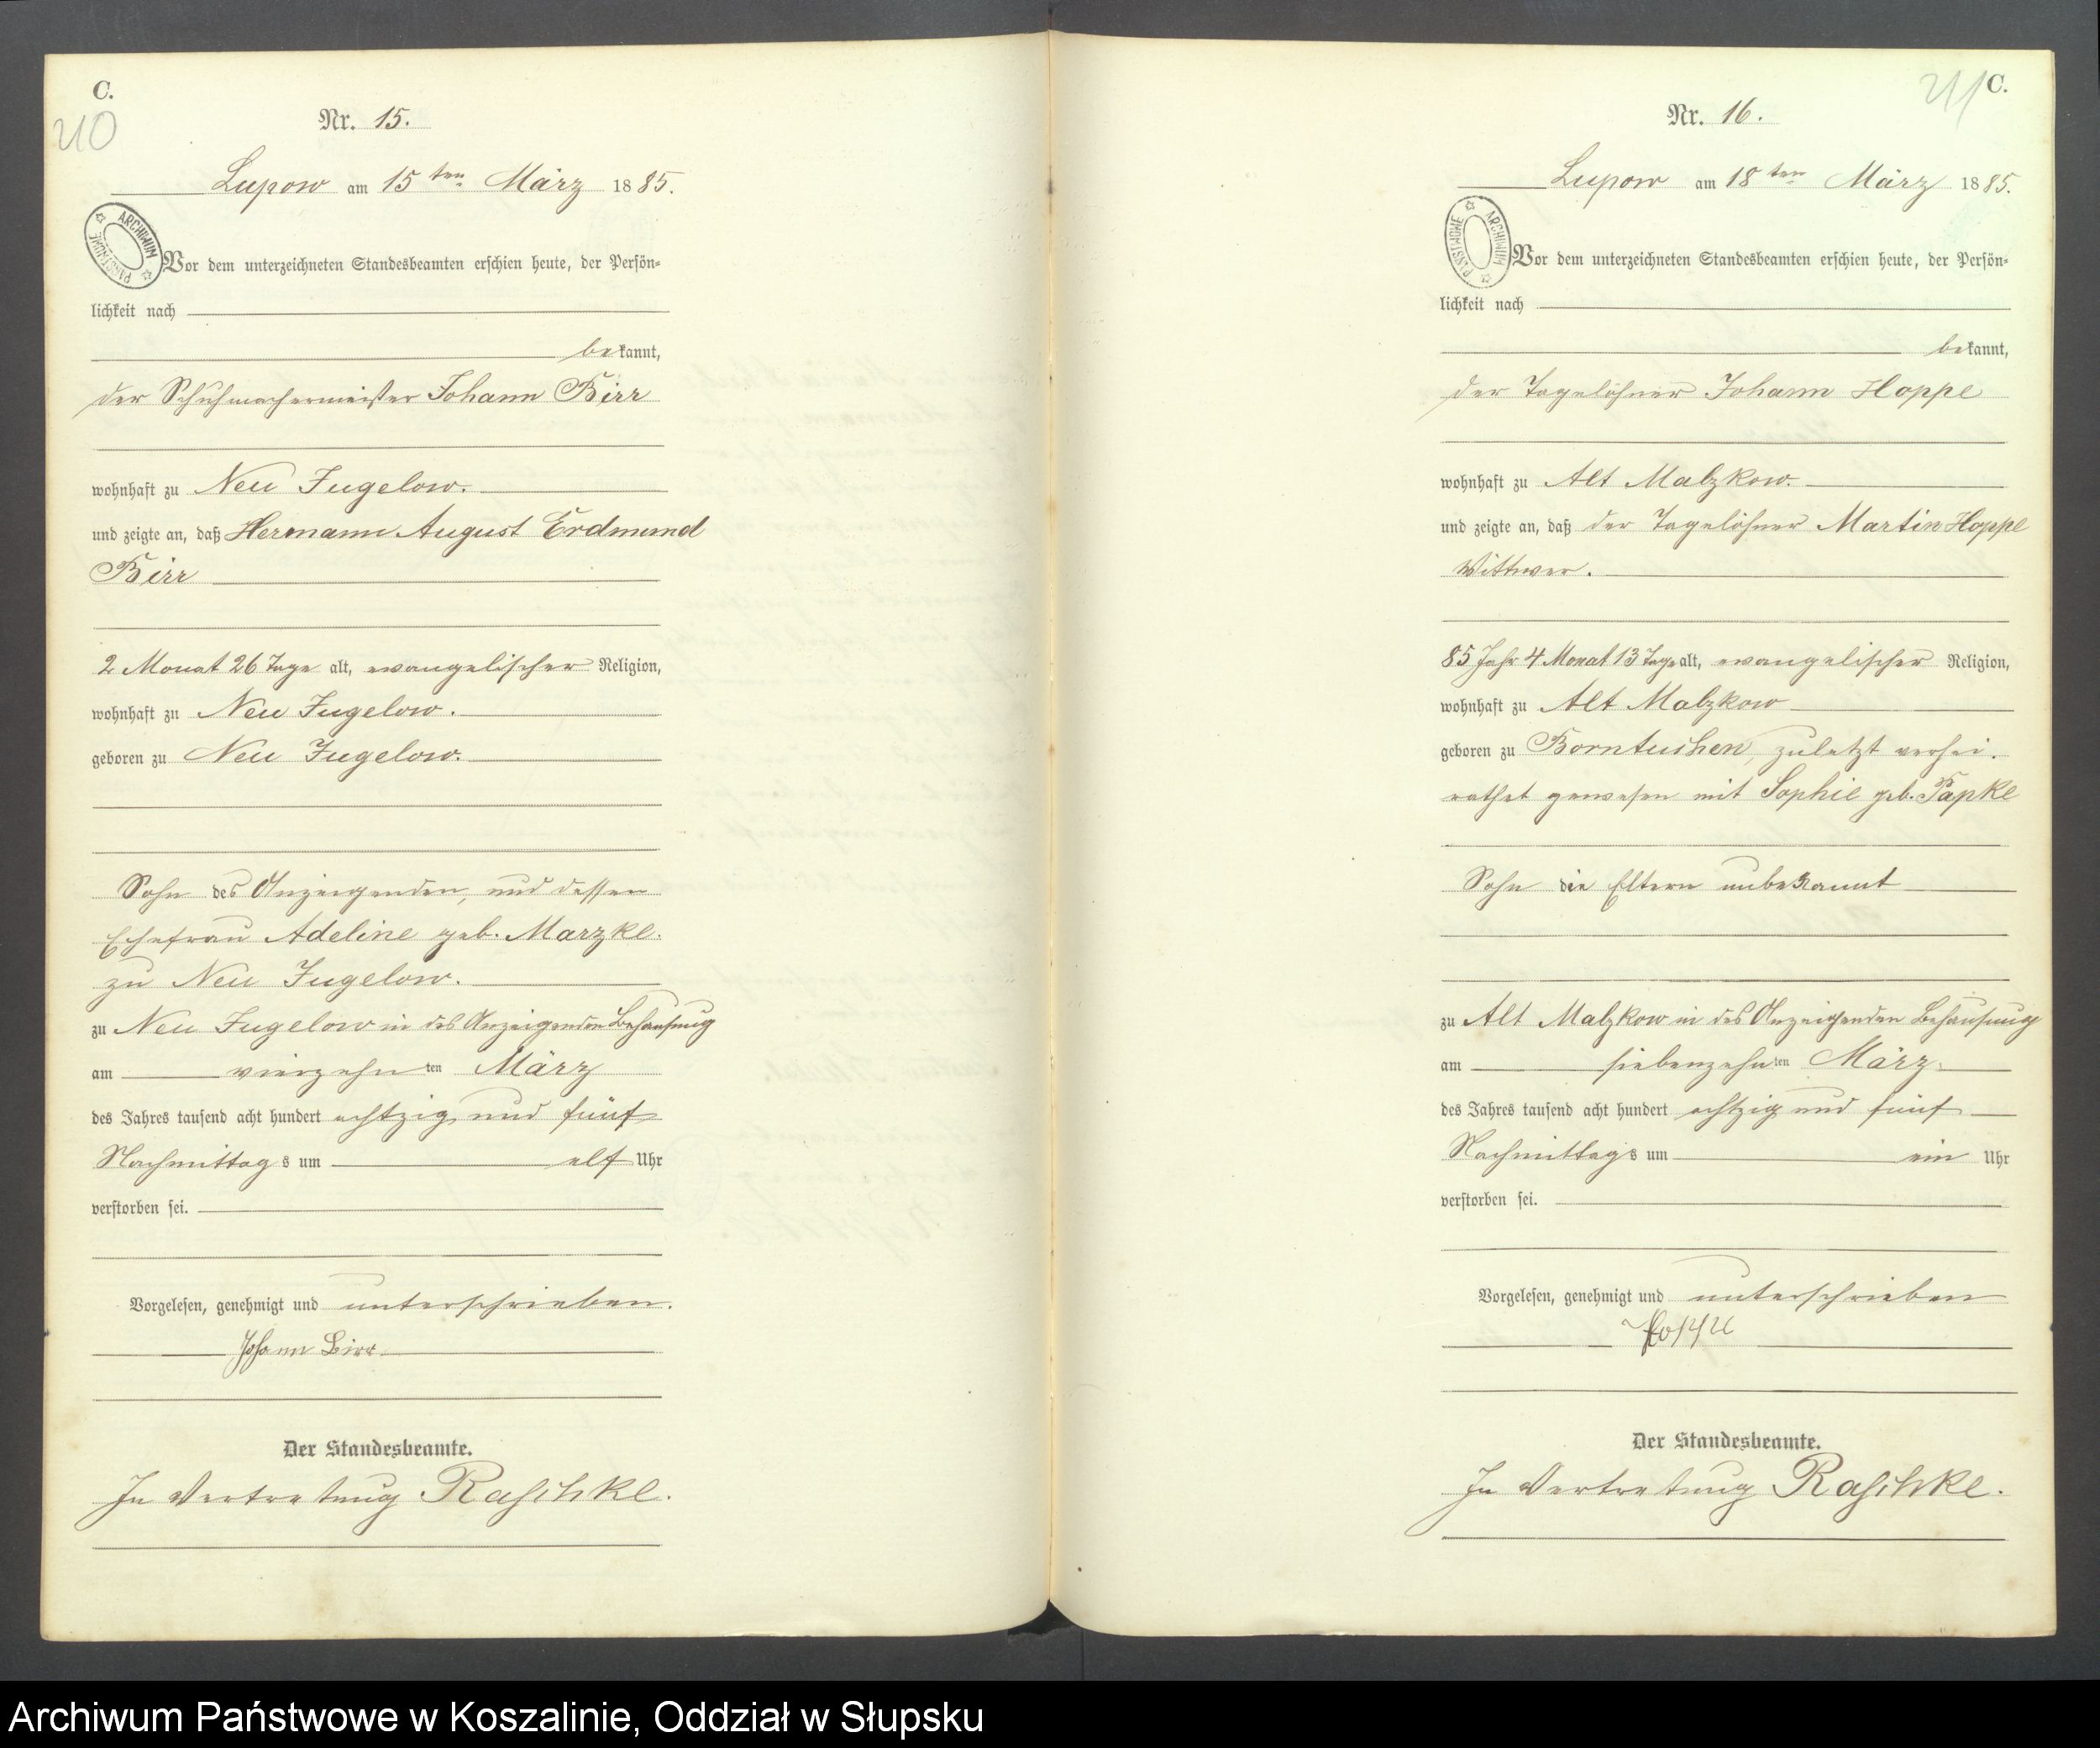 C.
210
Nr. 15.
Lupow am 15ten März 1885.
ARCHIWUM PAŃSTWOWE
Vor dem unterzeichneten Standesbeamten erschien heute, der Persön-
lichkeit nach
bekannt,
der Schuhmachermeister Johann Birr
wohnhaft zu Neu Jugelow.
und zeigte an, daß Hermann August Erdmund
Birr
2 Monat 26 Tage alt, evangelischer Religion,
wohnhaft zu Neu Jugelow.
geboren zu Neu Jugelow.
Sohn des Anzeigenden, und dessen
Ehefrau Adeline geb. Marzke.
zu Neu Jugelow.
zu Neu Jugelow in des Anzeigenden Behausung
am vierzehnten März
des Jahres tausend acht hundert achtzig und fünf
Nachmittags um elf Uhr
verstorben sei.
Vorgelesen, genehmigt und unterschrieben.
Johann Birr
Der Standesbeamte.
In Vertretung Raschke.
211 C.
Nr. 16.
Lupow am 18ten März 1885.
ARCHIWUM PAŃSTWOWE
Vor dem unterzeichneten Standesbeamten erschien heute, der Persön-
lichkeit nach
bekannt,
der Tagelöhner Johann Hoppe
wohnhaft zu Alt Malzkow.
und zeigte an, daß der Tagelöhner Martin Hoppe
Wittwer.
85 Jahr 4 Monat 13 Tage alt, evangelischer Religion,
wohnhaft zu Alt Malzkow
geboren zu Borntuchen, zuletzt verhei-
rathet gewesen mit Sophie geb. Papke
Sohn die Eltern unbekannt
zu Alt Malzkow in des Anzeigenden Behausung
am siebenzehnten März.
des Jahres tausend acht hundert achtzig und fünf
Nachmittags um ein Uhr
verstorben sei.
Vorgelesen, genehmigt und unterschrieben
Hoppe
Der Standesbeamte.
In Vertretung Raschke.
Archiwum Państwowe w Koszalinie, Oddział w Słupsku